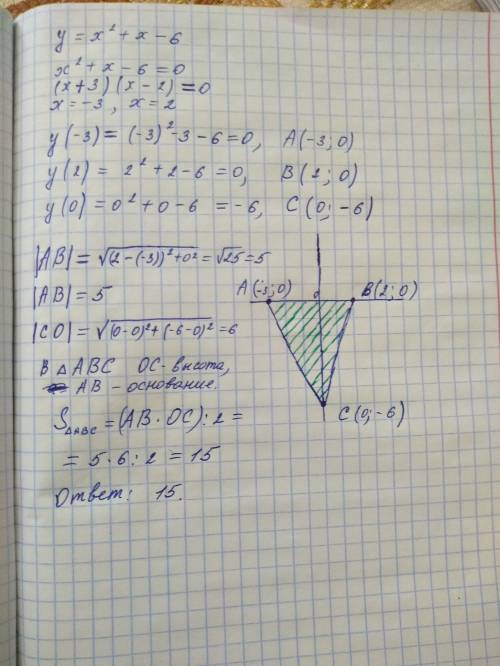 y = x² + x - 6
x² + x - 6 = 0
(x+3)(x-2) = 0
x = -3, x = 2
y(-3) = (-3)² - 3 - 6 = 0, A(-3; 0)
y(2) = 2² + 2 - 6 = 0, B(2; 0)
y(0) = 0² + 0 - 6 = -6, C(0; -6)
|AB| = √(2-(-3))² + 0² = √25 = 5
|AB| = 5
|CO| = √(0-0)² + (-6-0)² = 6
В △ ABC OC - высота,
AB - основание.
S△ABC = (AB · OC) : 2 =
= 5 · 6 : 2 = 15
Ответ: 15.
A(-3; 0)
0
B(2; 0)
C(0; -6)